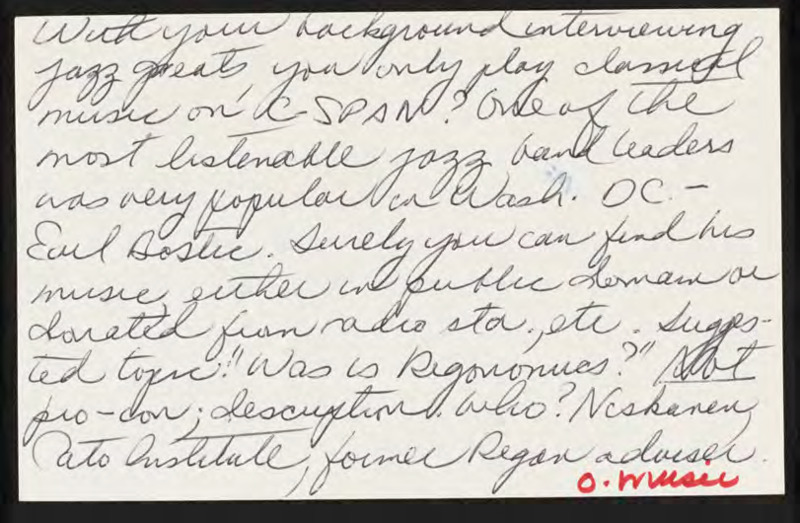 With your background interviewing
jazz greats, you only play classical
music on C-SPAN? One of the
most listenable jazz band leaders
was very popular in Wash. DC. -
Earl Bostic. Surely you can find his
music, either in public domain or
donated from radio sta., etc. Sugges-
ted topic: "Was is Regonomics?" Not
pro-con; description. Who? Niskanen,
Cato Institute, former Regan adviser.
O. Music